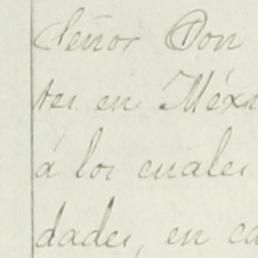 Señor Don
tes en Méxi
á los cuales
dades, en ca